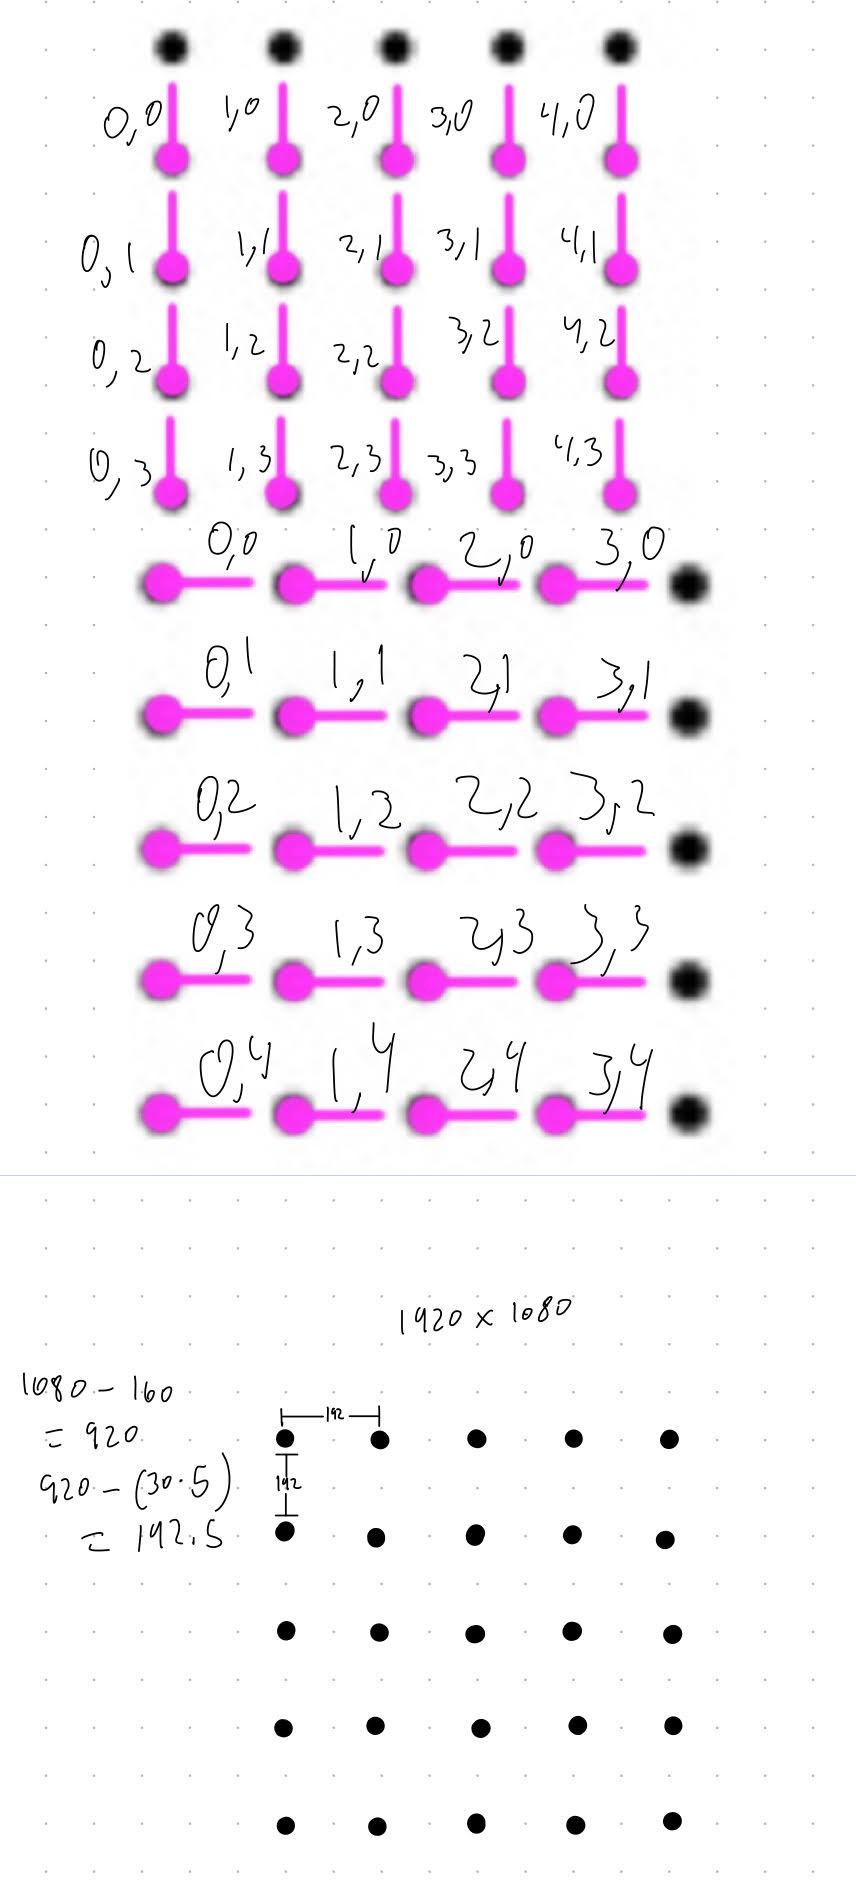 0,0 1,0 2,0 3,0 4,0
0,1 1,1 2,1 3,1 4,1
0,2 1,2 2,2 3,2 4,2
0,3 1,3 2,3 3,3 4,3
0,0 1,0 2,0 3,0
0,1 1,1 2,1 3,1
0,2 1,2 2,2 3,2
0,3 1,3 2,3 3,3
0,4 1,4 2,4 3,4
1920 x 1080
1080 - 160
= 920
920 - (30·5)
= 192.5
192
192